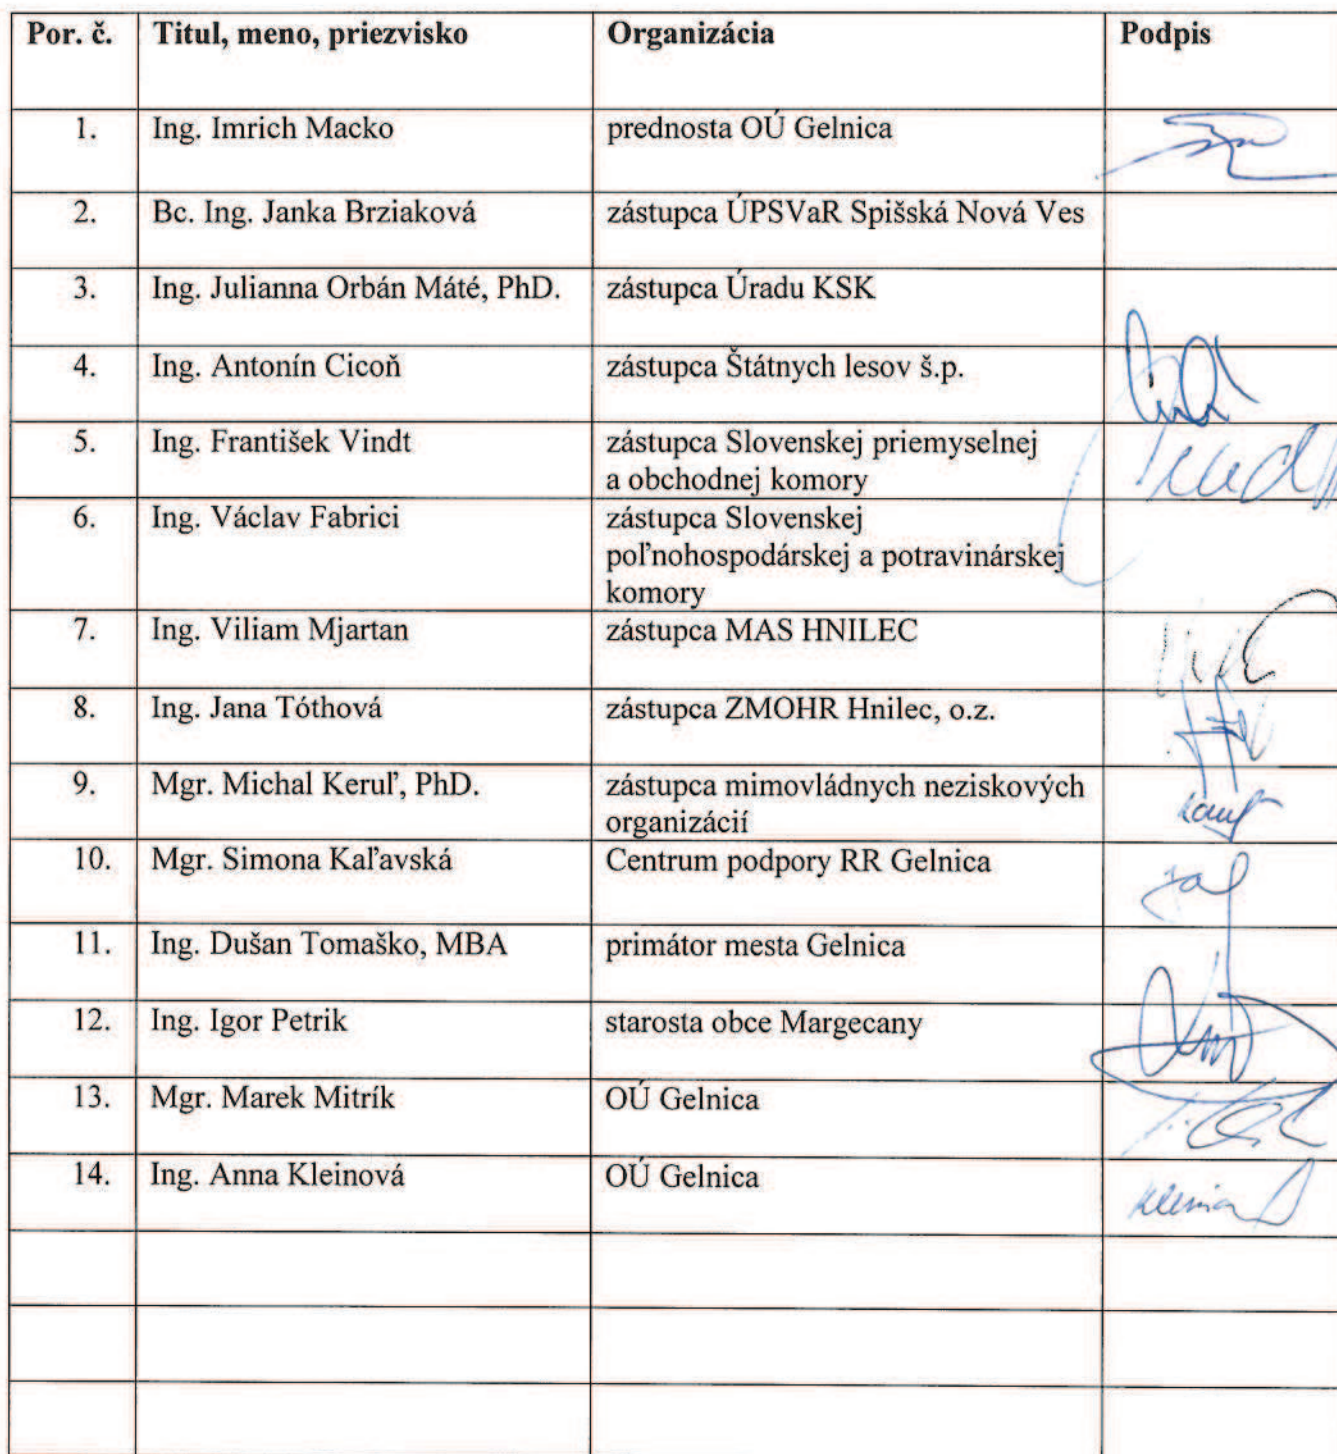 Por. č. Titul, meno, priezvisko Organizácia Podpis
1. Ing. Imrich Macko prednosta OÚ Gelnica
2. Bc. Ing. Janka Brziaková zástupca ÚPSVaR Spišská Nová Ves
3. Ing. Julianna Orbán Máté, PhD. zástupca Úradu KSK
4. Ing. Antonín Cicoň zástupca Štátnych lesov š.p.
5. Ing. František Vindt zástupca Slovenskej priemyselnej
a obchodnej komory
6. Ing. Václav Fabrici zástupca Slovenskej
poľnohospodárskej a potravinárskej
komory
7. Ing. Viliam Mjartan zástupca MAS HNILEC
8. Ing. Jana Tóthová zástupca ZMOHR Hnilec, o.z.
9. Mgr. Michal Keruľ, PhD. zástupca mimovládnych neziskových
organizácií
10. Mgr. Simona Kaľavská Centrum podpory RR Gelnica
11. Ing. Dušan Tomaško, MBA primátor mesta Gelnica
12. Ing. Igor Petrik starosta obce Margecany
13. Mgr. Marek Mitrík OÚ Gelnica
14. Ing. Anna Kleinová OÚ Gelnica